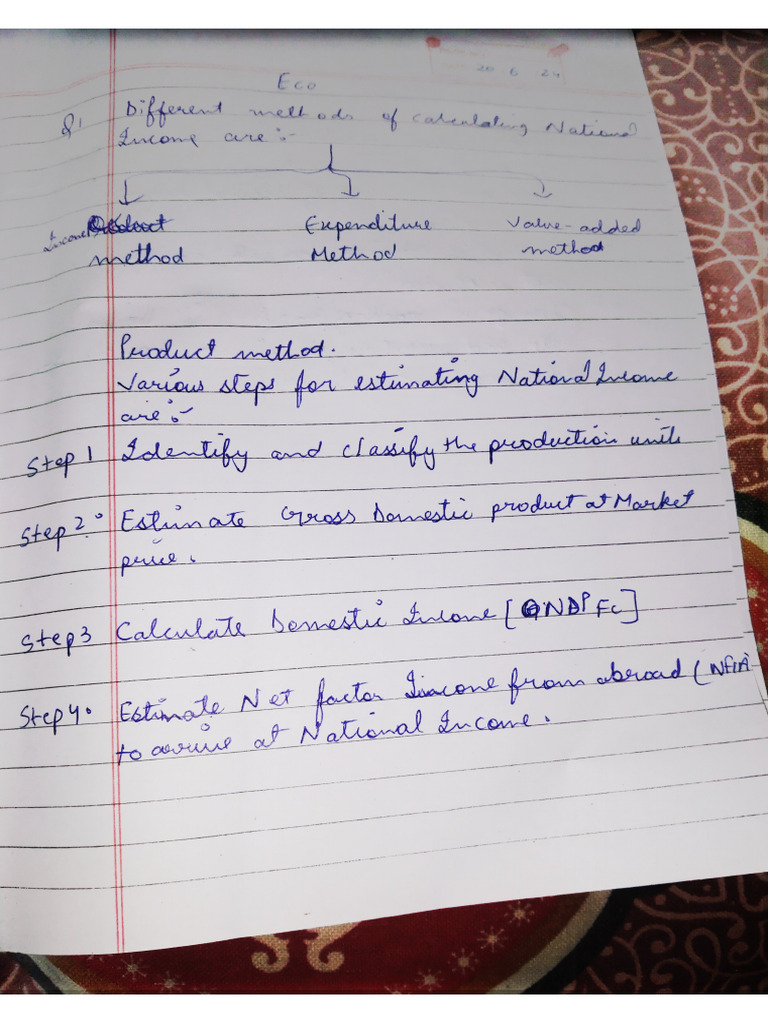 20 6 24
Eco
Q1 Different methods of calculating National
Income are:-
Income Expenditure Value-added
method Method method
Product method.
Various steps for estimating National Income
are:-
Step 1 Identify and classify the production units
Step 2: Estimate Gross Domestic product at Market
price.
Step 3 Calculate Domestic Income [NDP FC]
Step 4. Estimate Net factor Income from abroad (NFIA
to arrive at National Income.